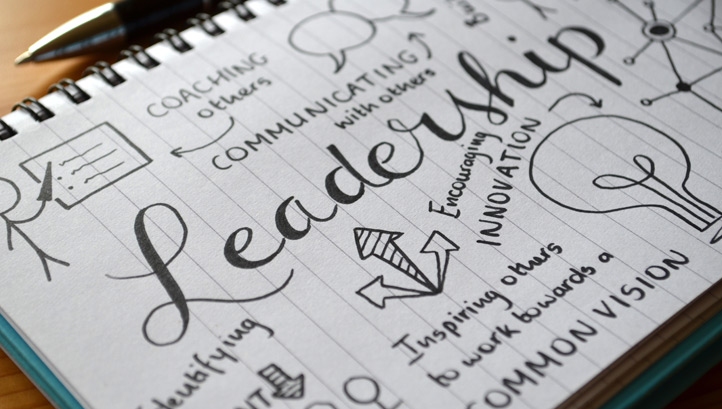 COACHING
others
COMMUNICATING
with others
Leadership
Encouraging
INNOVATION
Inspiring others
to work towards a
COMMON VISION
Identifying